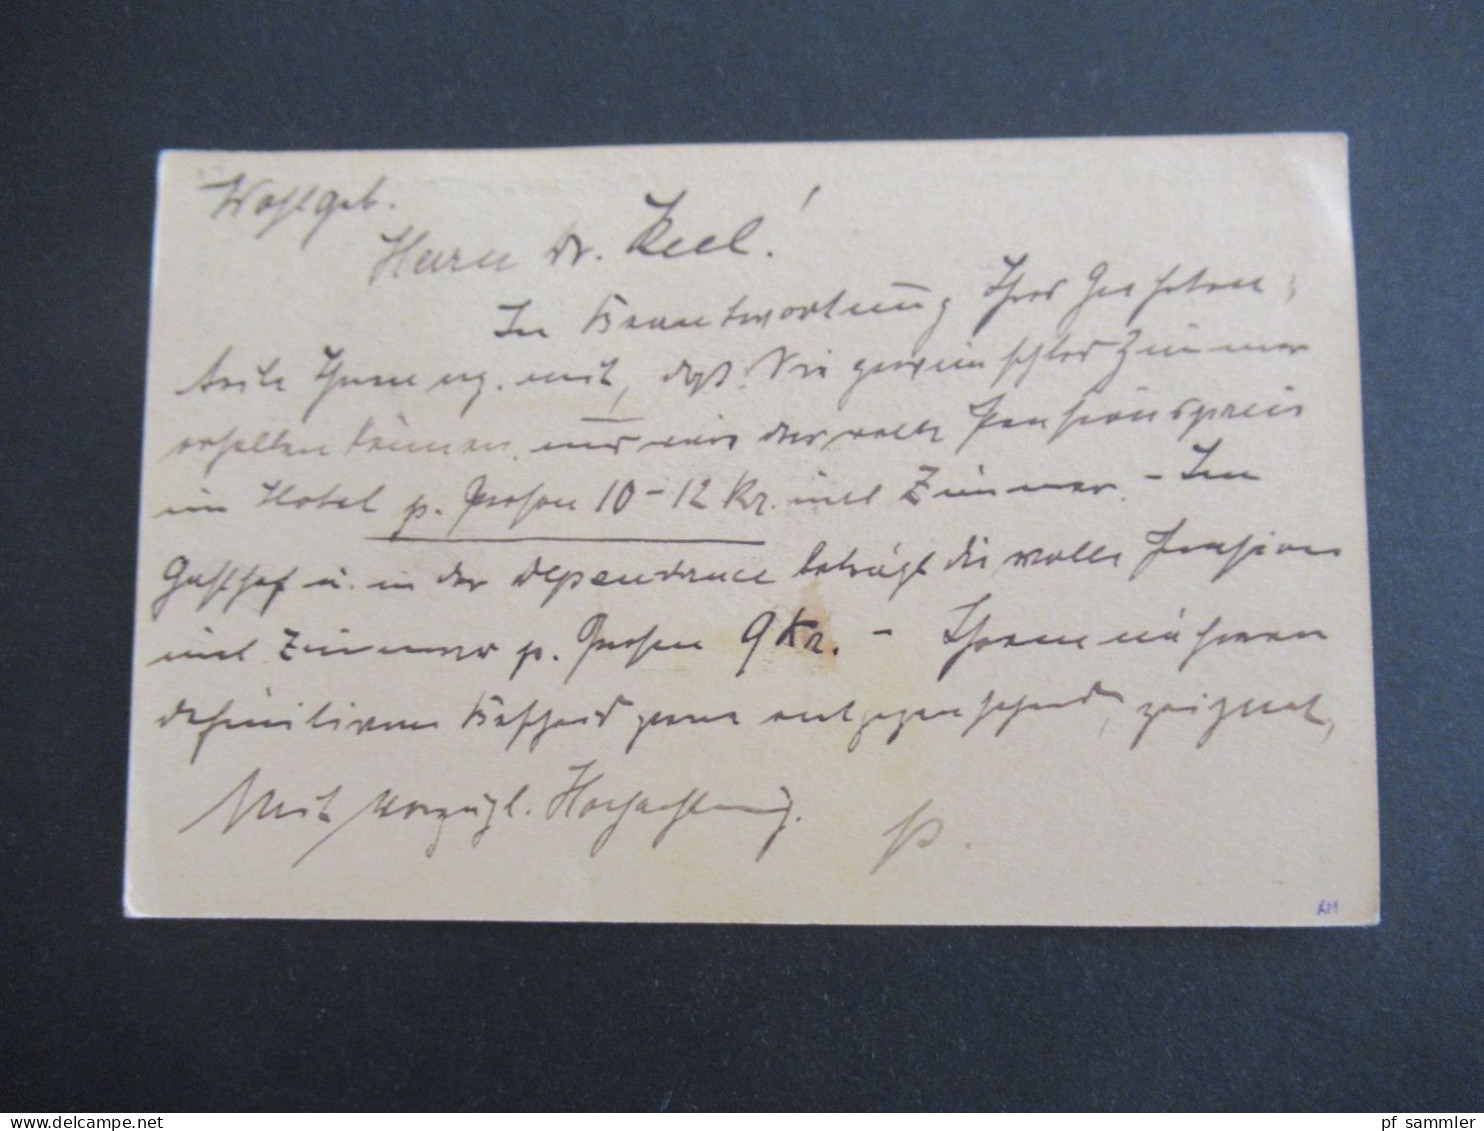 Wohlgeb.
Herrn Dr. Keel!
In Beantwortung Ihres Geehrten,
teile Ihnen erg. mit, daß Sie gewünschtes Zimmer
erhalten können, und wäre der volle Pensionspreis
im Hotel p. Person 10-12 Kr. incl Zimmer. - Im
Gasthof u. in der Dependance beträgt die volle Pension
incl Zimmer p. Person 9 Kr. - Ihrem näheren
definitiven Bescheid gerne entgegensehend, zeichnet,
Mit vorzügl. Hochachtung.
AM
pf sammler